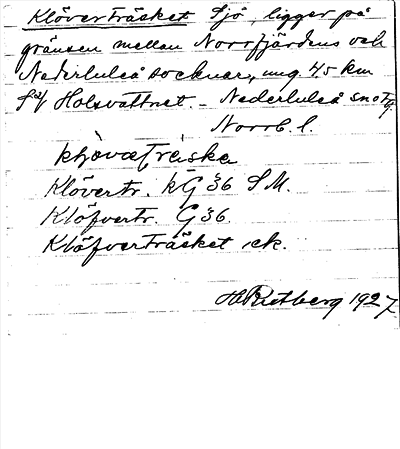 Klöverträsket Sjö, ligger på
gränsen mellan Norrfjärdens och
Nederluleå socknar, ung. 4,5 km
SV Holsvattnet. - Nederluleå sn o Tg
Norrb. l.
Klövertr. kG 36 S.M.
Klöfvertr. G 36.
Klöfverträsket ek.
H Rutberg 1927